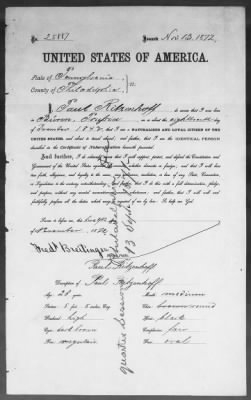 No. 25887 Issued Nov. 13, 1872
UNITED STATES OF AMERICA.
State of Pennsylvania
County of Philadelphia } ss.
I Paul Ritzenhoff do swear that I was born
in on or about the eighteenth day
of 1847; that I am a NATURALIZED AND LOYAL CITIZEN OF THE
UNITED STATES, and about to travel abroad; and further, that I am the IDENTICAL PERSON
described in the Certificate of Naturalization herewith presented.
And further, I do solemnly swear that I will support, protect, and defend the Constitution and
Government of the United States against all enemies, whether domestic or foreign; and that I will bear
true faith, allegiance, and loyalty to the same, any ordinance, resolution, or law of any State, Convention,
or Legislature to the contrary notwithstanding; and further, that I do this with a full determination, pledge,
and purpose, without any mental reservation or evasion whatsoever; and further, that I will well and
faithfully perform all the duties which may be required of me by law. So help me God.
Sworn to before me, this day
of November 1872
Fred. Breitinger
Paul Ritzenhoff
Description of Paul Ritzenhoff
Age: 25 year Mouth: medium
Stature: 5 feet inches, Eng. Chin: round
Forehead: high Hair: black
Eyes: dark brown Complexion: fair
Nose: regular Face: oval
quarter Sessions
13 Sept